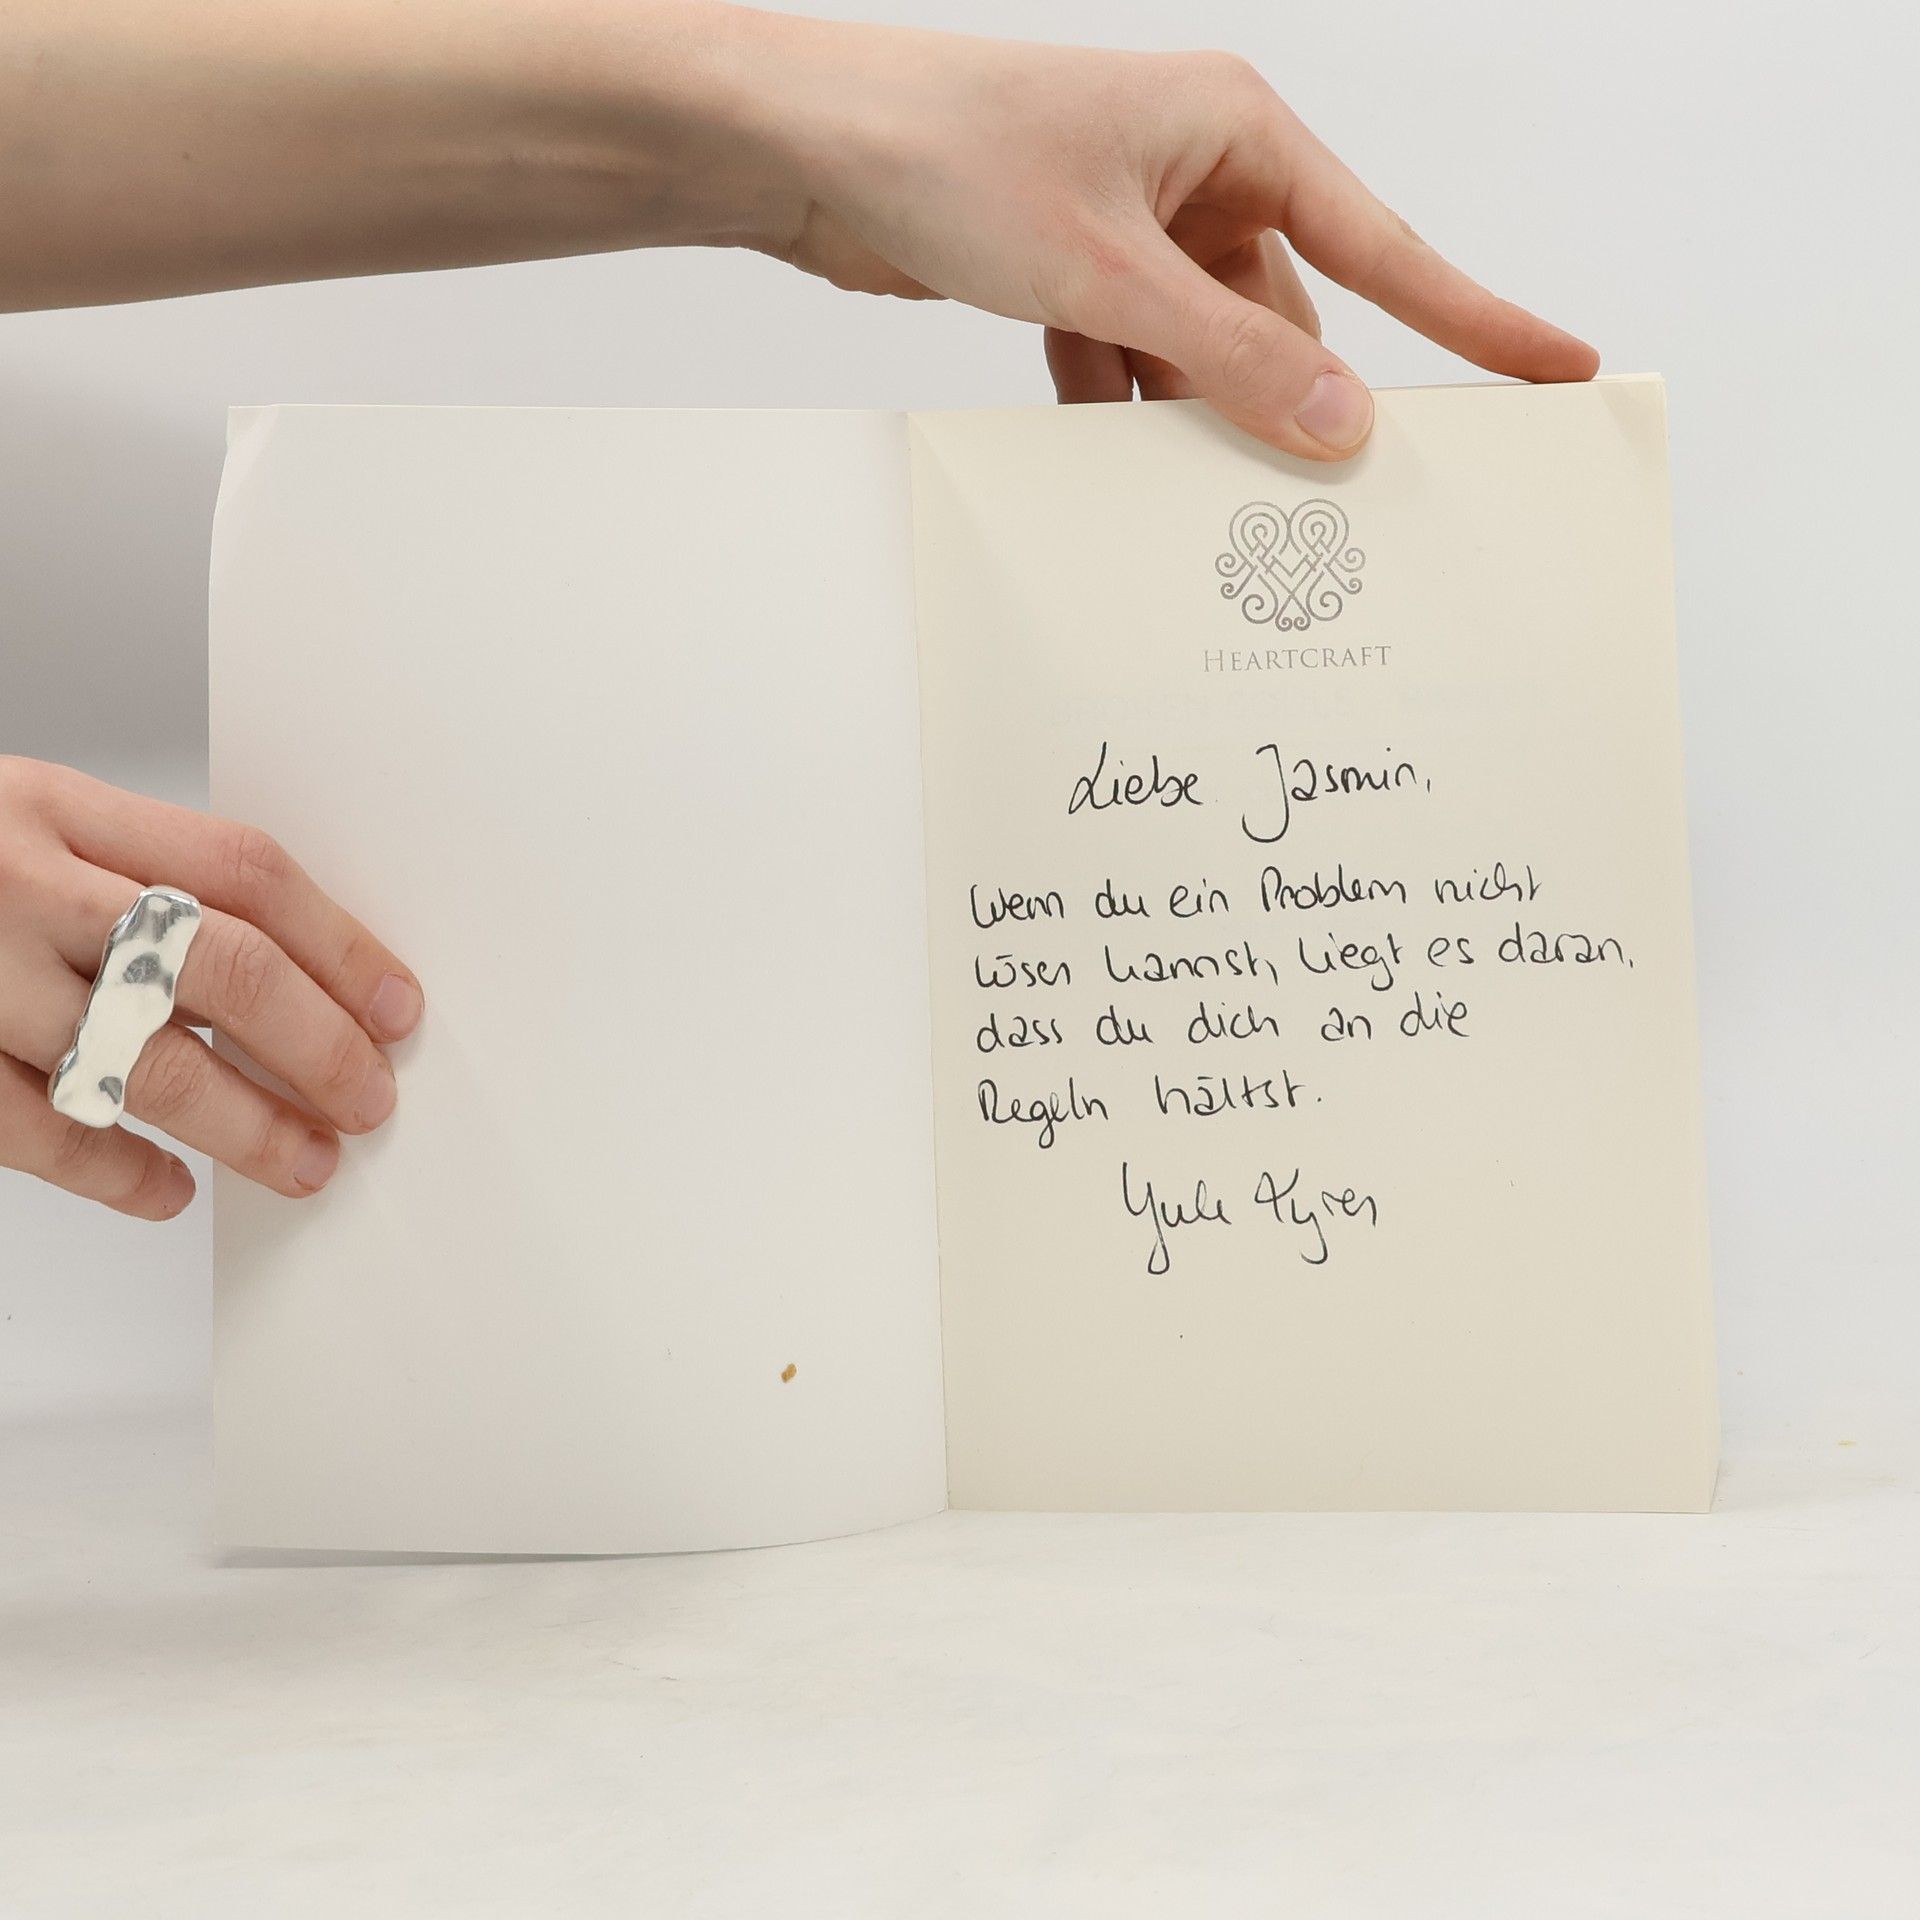 HEARTCRAFT
Liebe Jasmin,
Wenn du ein Problem nicht
lösen kannst, liegt es daran,
dass du dich an die
Regeln hältst.